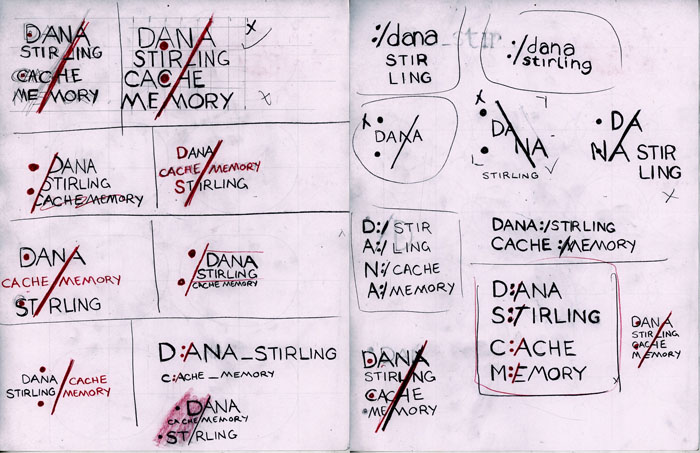 DANA
STIRLING
CACHE
MEMORY
DANA
STIRLING
CACHE
MEMORY
X
DANA
STIRLING
CACHE MEMORY
DANA
CACHE/MEMORY
STIRLING
DANA
CACHE/MEMORY
STIRLING
:/DANA
STIRLING
CACHE MEMORY
DANA
STIRLING
CACHE
MEMORY
D:ANA_STIRLING
C:ACHE_MEMORY
DANA
CACHE/MEMORY
STIRLING
:/dana_stir
STIR
LING
:/dana
stirling
X
DANA
X
DA
NA
STIRLING
DA
NA STIR
LING
X
D:/STIR
A:/LING
N:/CACHE
A:/MEMORY
DANA:/STIRLING
CACHE:/MEMORY
D:ANA
S:TIRLING
C:ACHE
M:EMORY
DANA
STIRLING
CACHE
MEMORY
DANA
STIRLING
CACHE
MEMORY